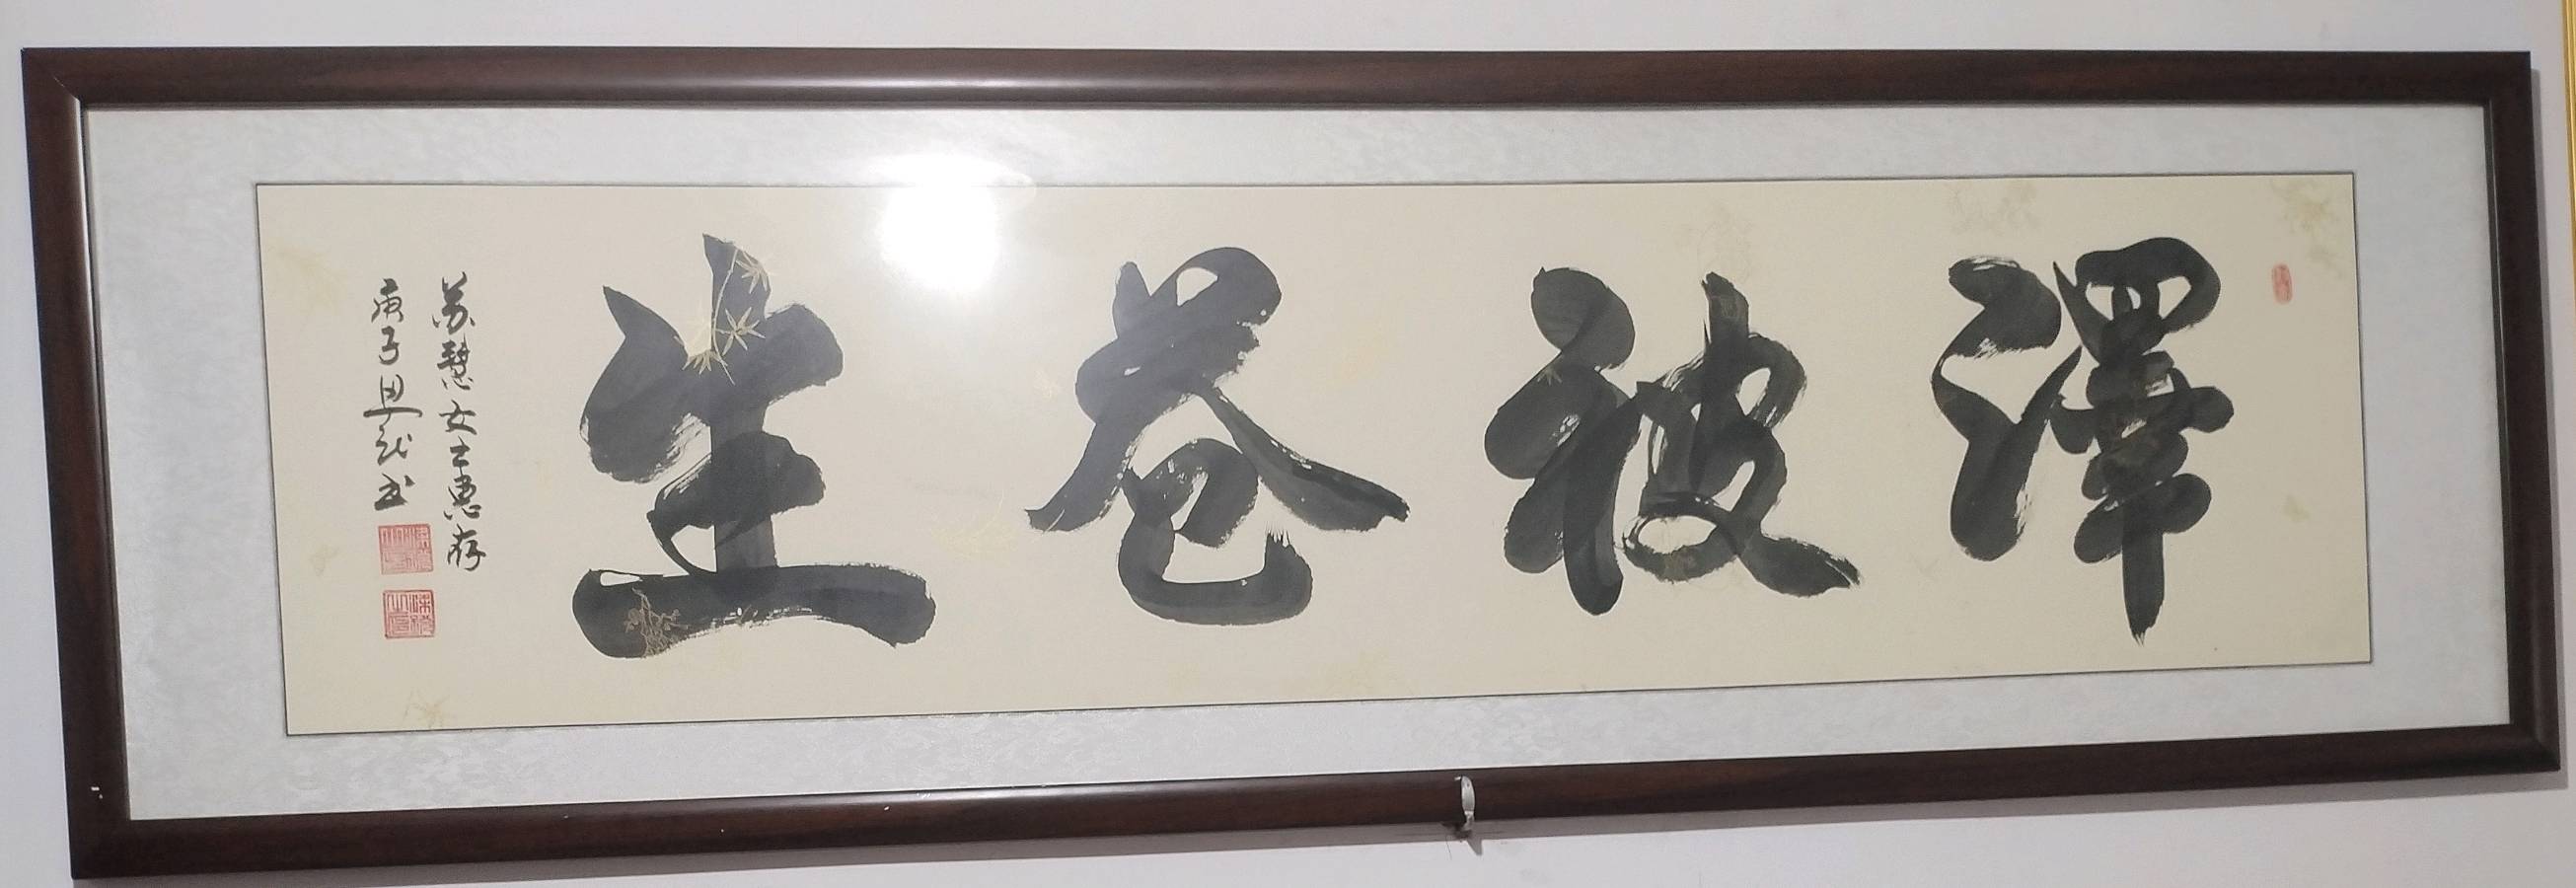 澤被苍生
苏慧女士惠存
庚子书